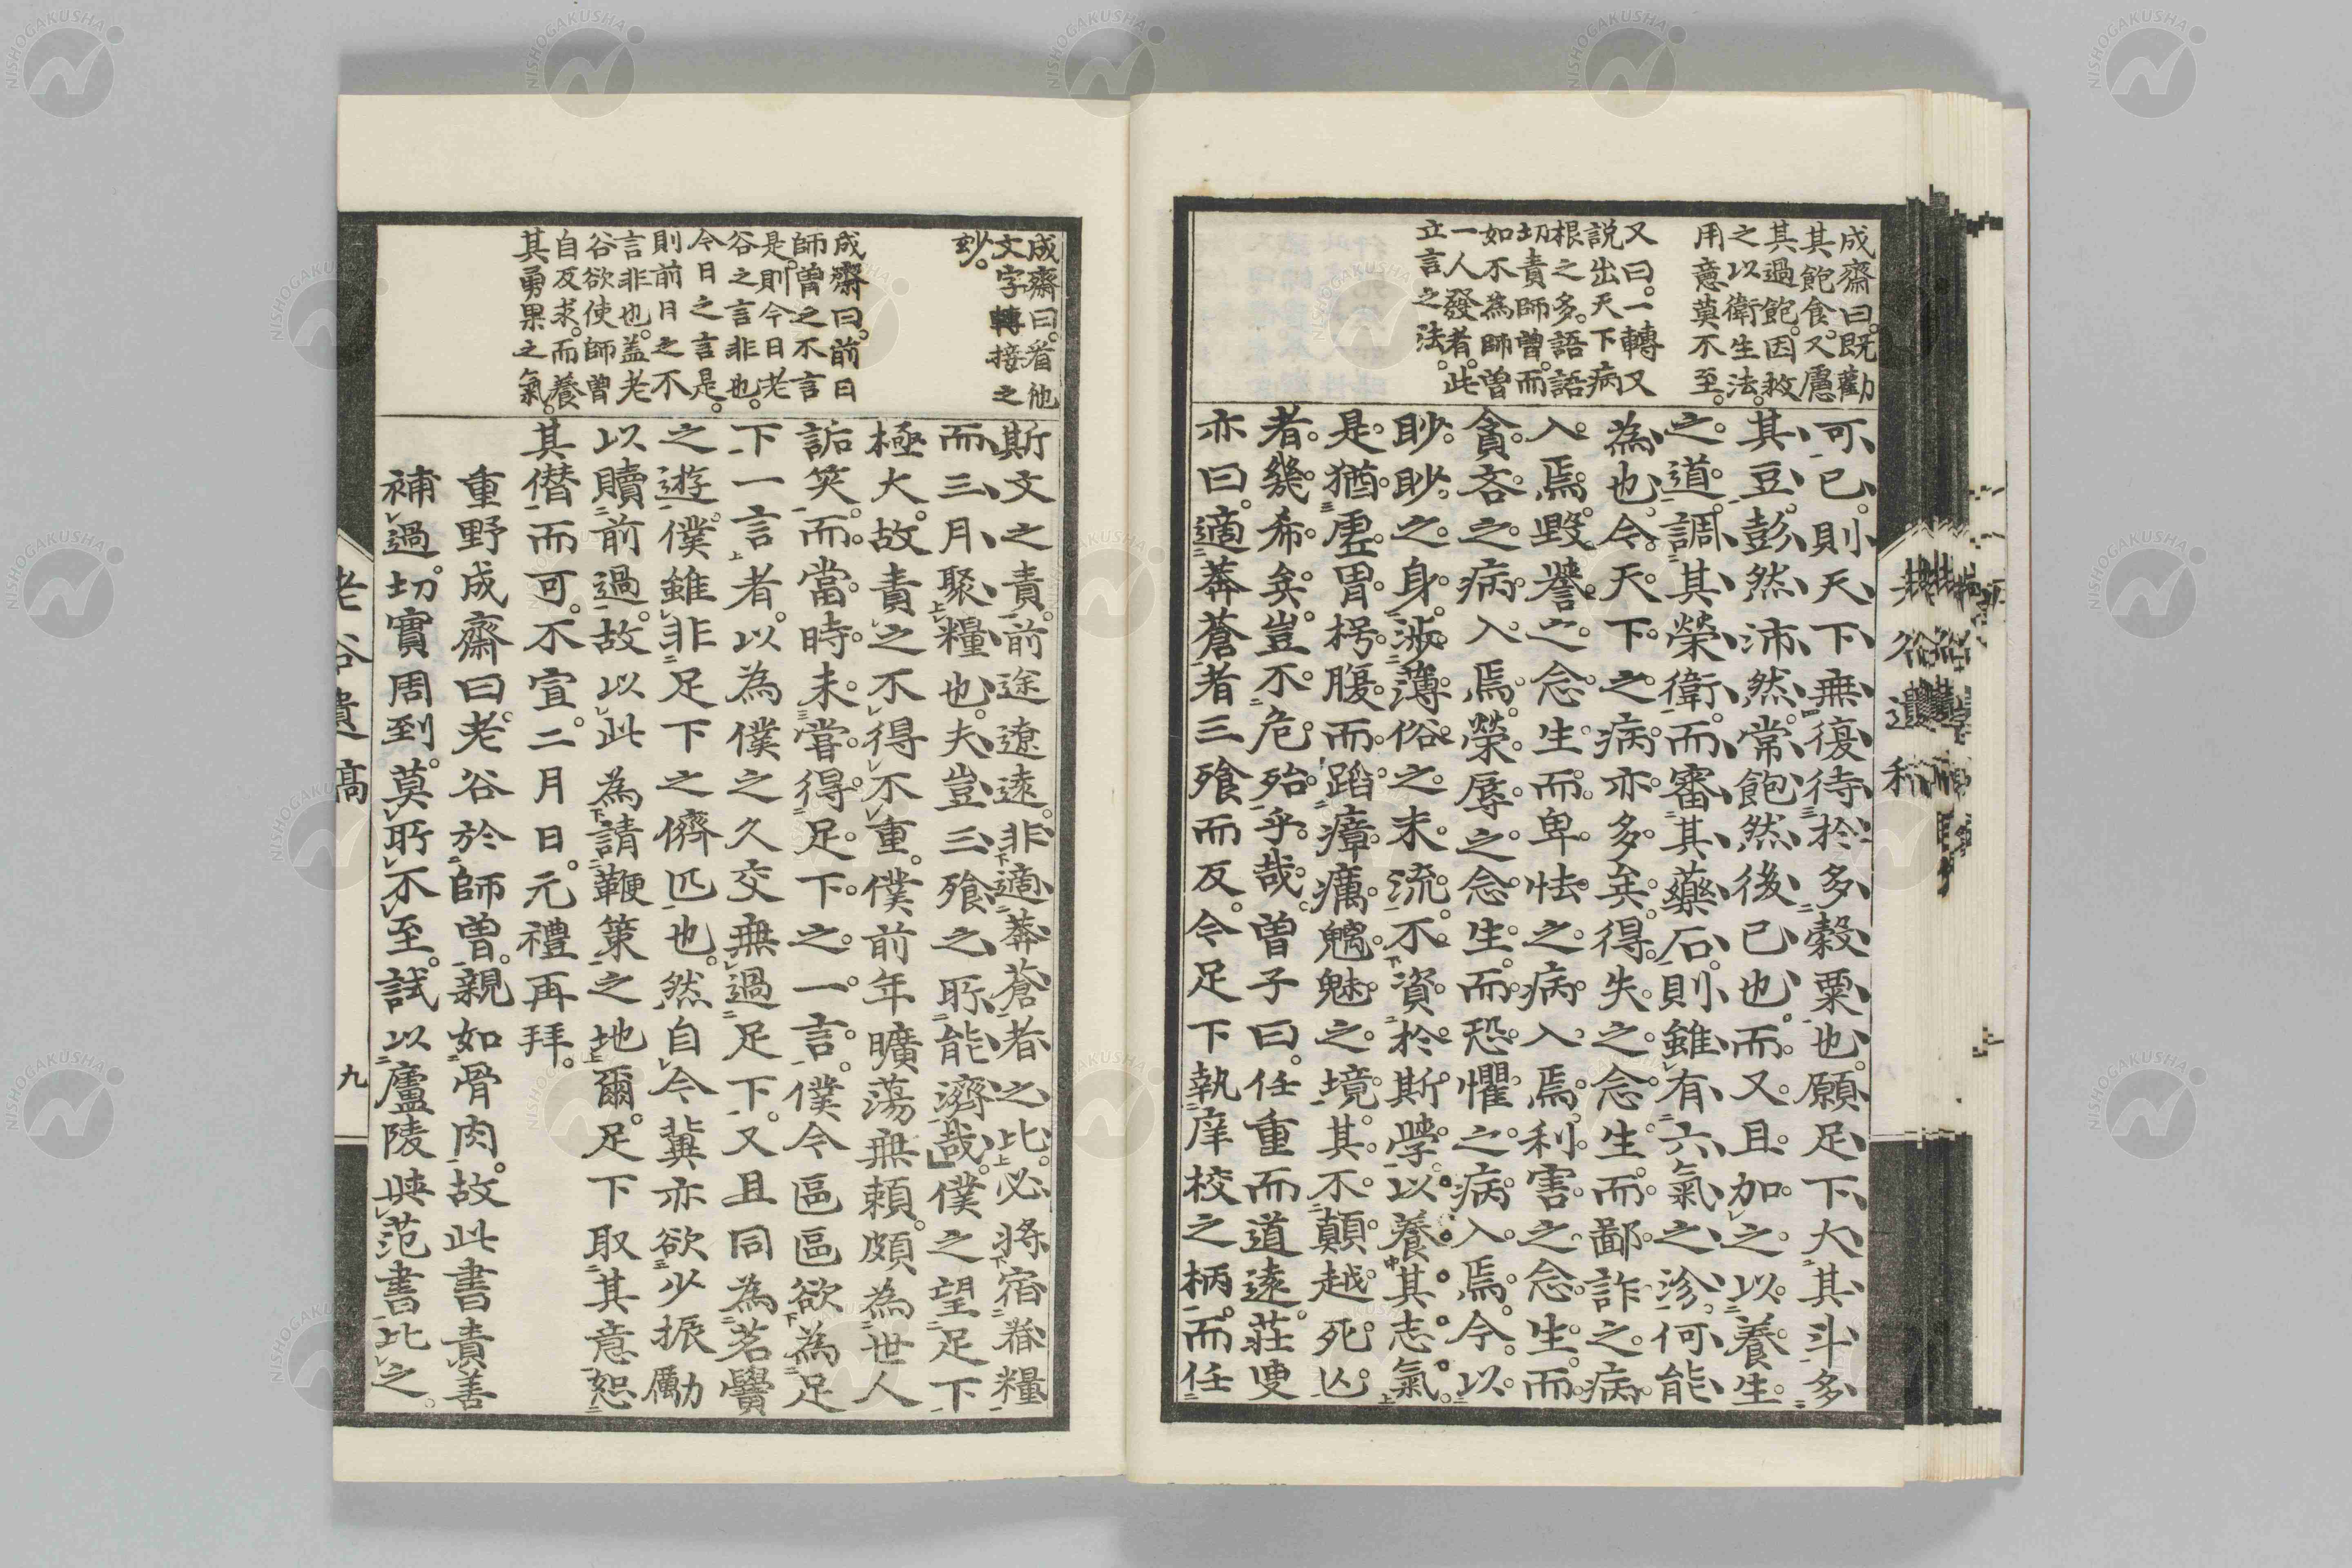 成齋曰。既勸
其飽食。又慮
其過飽。因救
之以衛生法。
用意莫不至。
又曰。一轉又
説出天下病
根之多。語語
切責師曽。而
如不為師曽
一人發者。此
立言之法。
可已。則天下無復待於多穀粟也。願足下大其斗多
其豆。彭然沛然。常飽然後已也。而又且加之以養生
之道。調其榮衛。而審其藥石。則雖有六氣之沴。何能
為也。今天下之病亦多矣。得失之念生。而鄙詐之病
入焉。毀譽之念生。而卑怯之病入焉。利害之念生。而
貪吝之病入焉。榮辱之念生。而恐懼之病入焉。今以
眇眇之身。淑薄俗之末流。不資於斯學以養其志氣。
是猶虛胃枵腹而蹈瘴癘魑魅之境。其不顛越死亾
者。幾希矣。豈不危殆乎哉。曽子曰。任重而道遠。莊叟
亦曰。適莽蒼者三飱而反。今足下執庠校之柄。而任
成齋曰。省他
文字轉接之
妙。
成齋曰。前日
師曽之不言
是。則今日老
谷之言非也。
今日之言是。
則前日之不
言非也。盖老
谷欲使師曽
自反求。而養
其勇果之氣。
斯文之責。前途遼遠。非適莽蒼者之比。必将宿舂糧
而三月聚糧也。夫豈三飱之所能濟哉。僕之望足下
極大。故責之不得不重。僕前年曠蕩無賴。頗為世人
詬笑。而當時未嘗得足下之一言。僕今區區欲為足
下一言者。以為僕之久交無過足下。又且同為茗黌
之遊。僕雖非足下之儕匹也。然自今冀亦欲少振勵
以贖前過。故以此為請鞭策之地爾。足下取其意恕
其僭而可。不宣。二月日。元禮再拜。
重野成齋曰。老谷於師曽。親如骨肉。故此書責善
補過。切實周到。莫所不至。試以廬陵峡范書比之。
老谷遺高
九